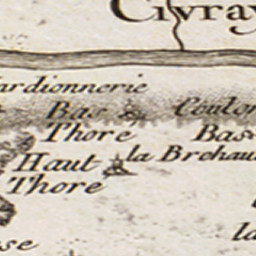 Civray
ardionnerie
Bas
Thore
Coulon
Bas
Haut
Thore
la Brehau
sse
la